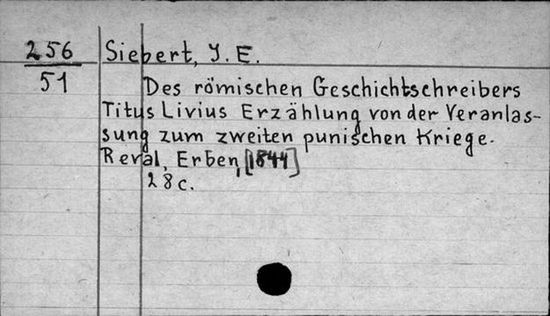 256 Siebert, J. E.
51
Des römischen Geschichtschreibers
Titus Livius Erzählung von der Veranlas-
sung zum zweiten punischen Kriege.
Reval, Erben, [1844]
28 c.